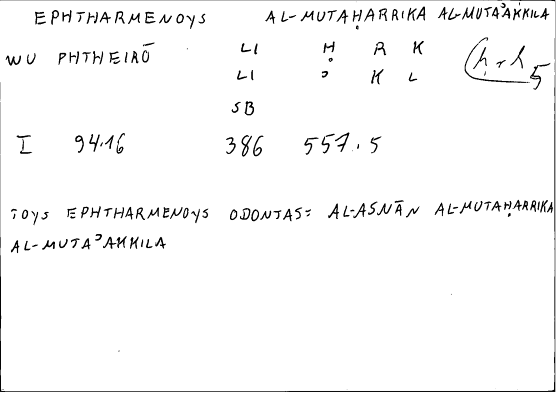 EPHTHARMENOYS AL-MUTAḤARRIKA AL-MUTAʾAKKILA
WU PHTHEIRŌ LI Ḥ R K
LI ʾ K L
SB
I 94.16 386 557.5
TOYS EPHTHARMENOYS ODONTAS: AL-ASNĀN AL-MUTAḤARRIKA
AL-MUTAʾAKKILA